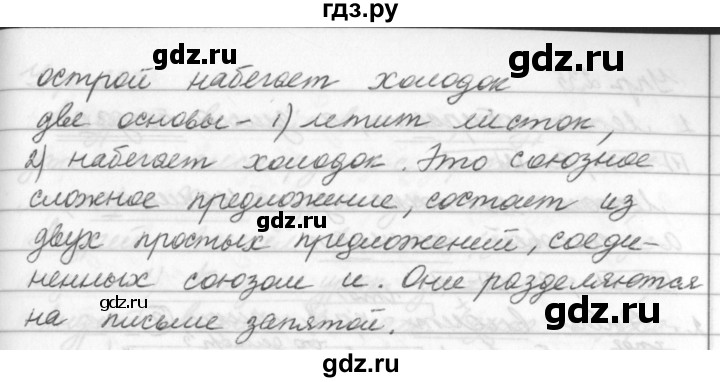 гдз.ру
gdz.ru gdz.ru
острой набегает холодок
две основы – 1) летит листок,
2) набегает холодок. Это союзное
сложное предложение, состоит из
gdz.ru
двух простых предложений, соеди-
gdz.ru
ненных союзом и. Они разделяются
gdz.ru
на письме запятой.
gdz.ru